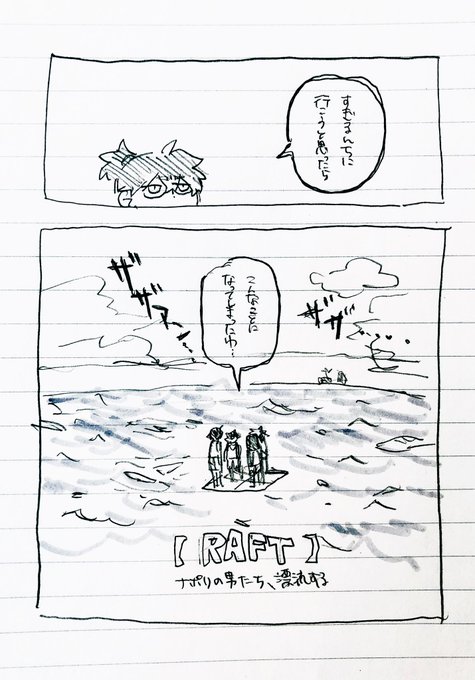 すぎるんちに
行こうと思ったら
ザザ.....
こんなことに
なってしまったわ…
ザザァー…
【RAFT】
ナポリの男たち、漂流する